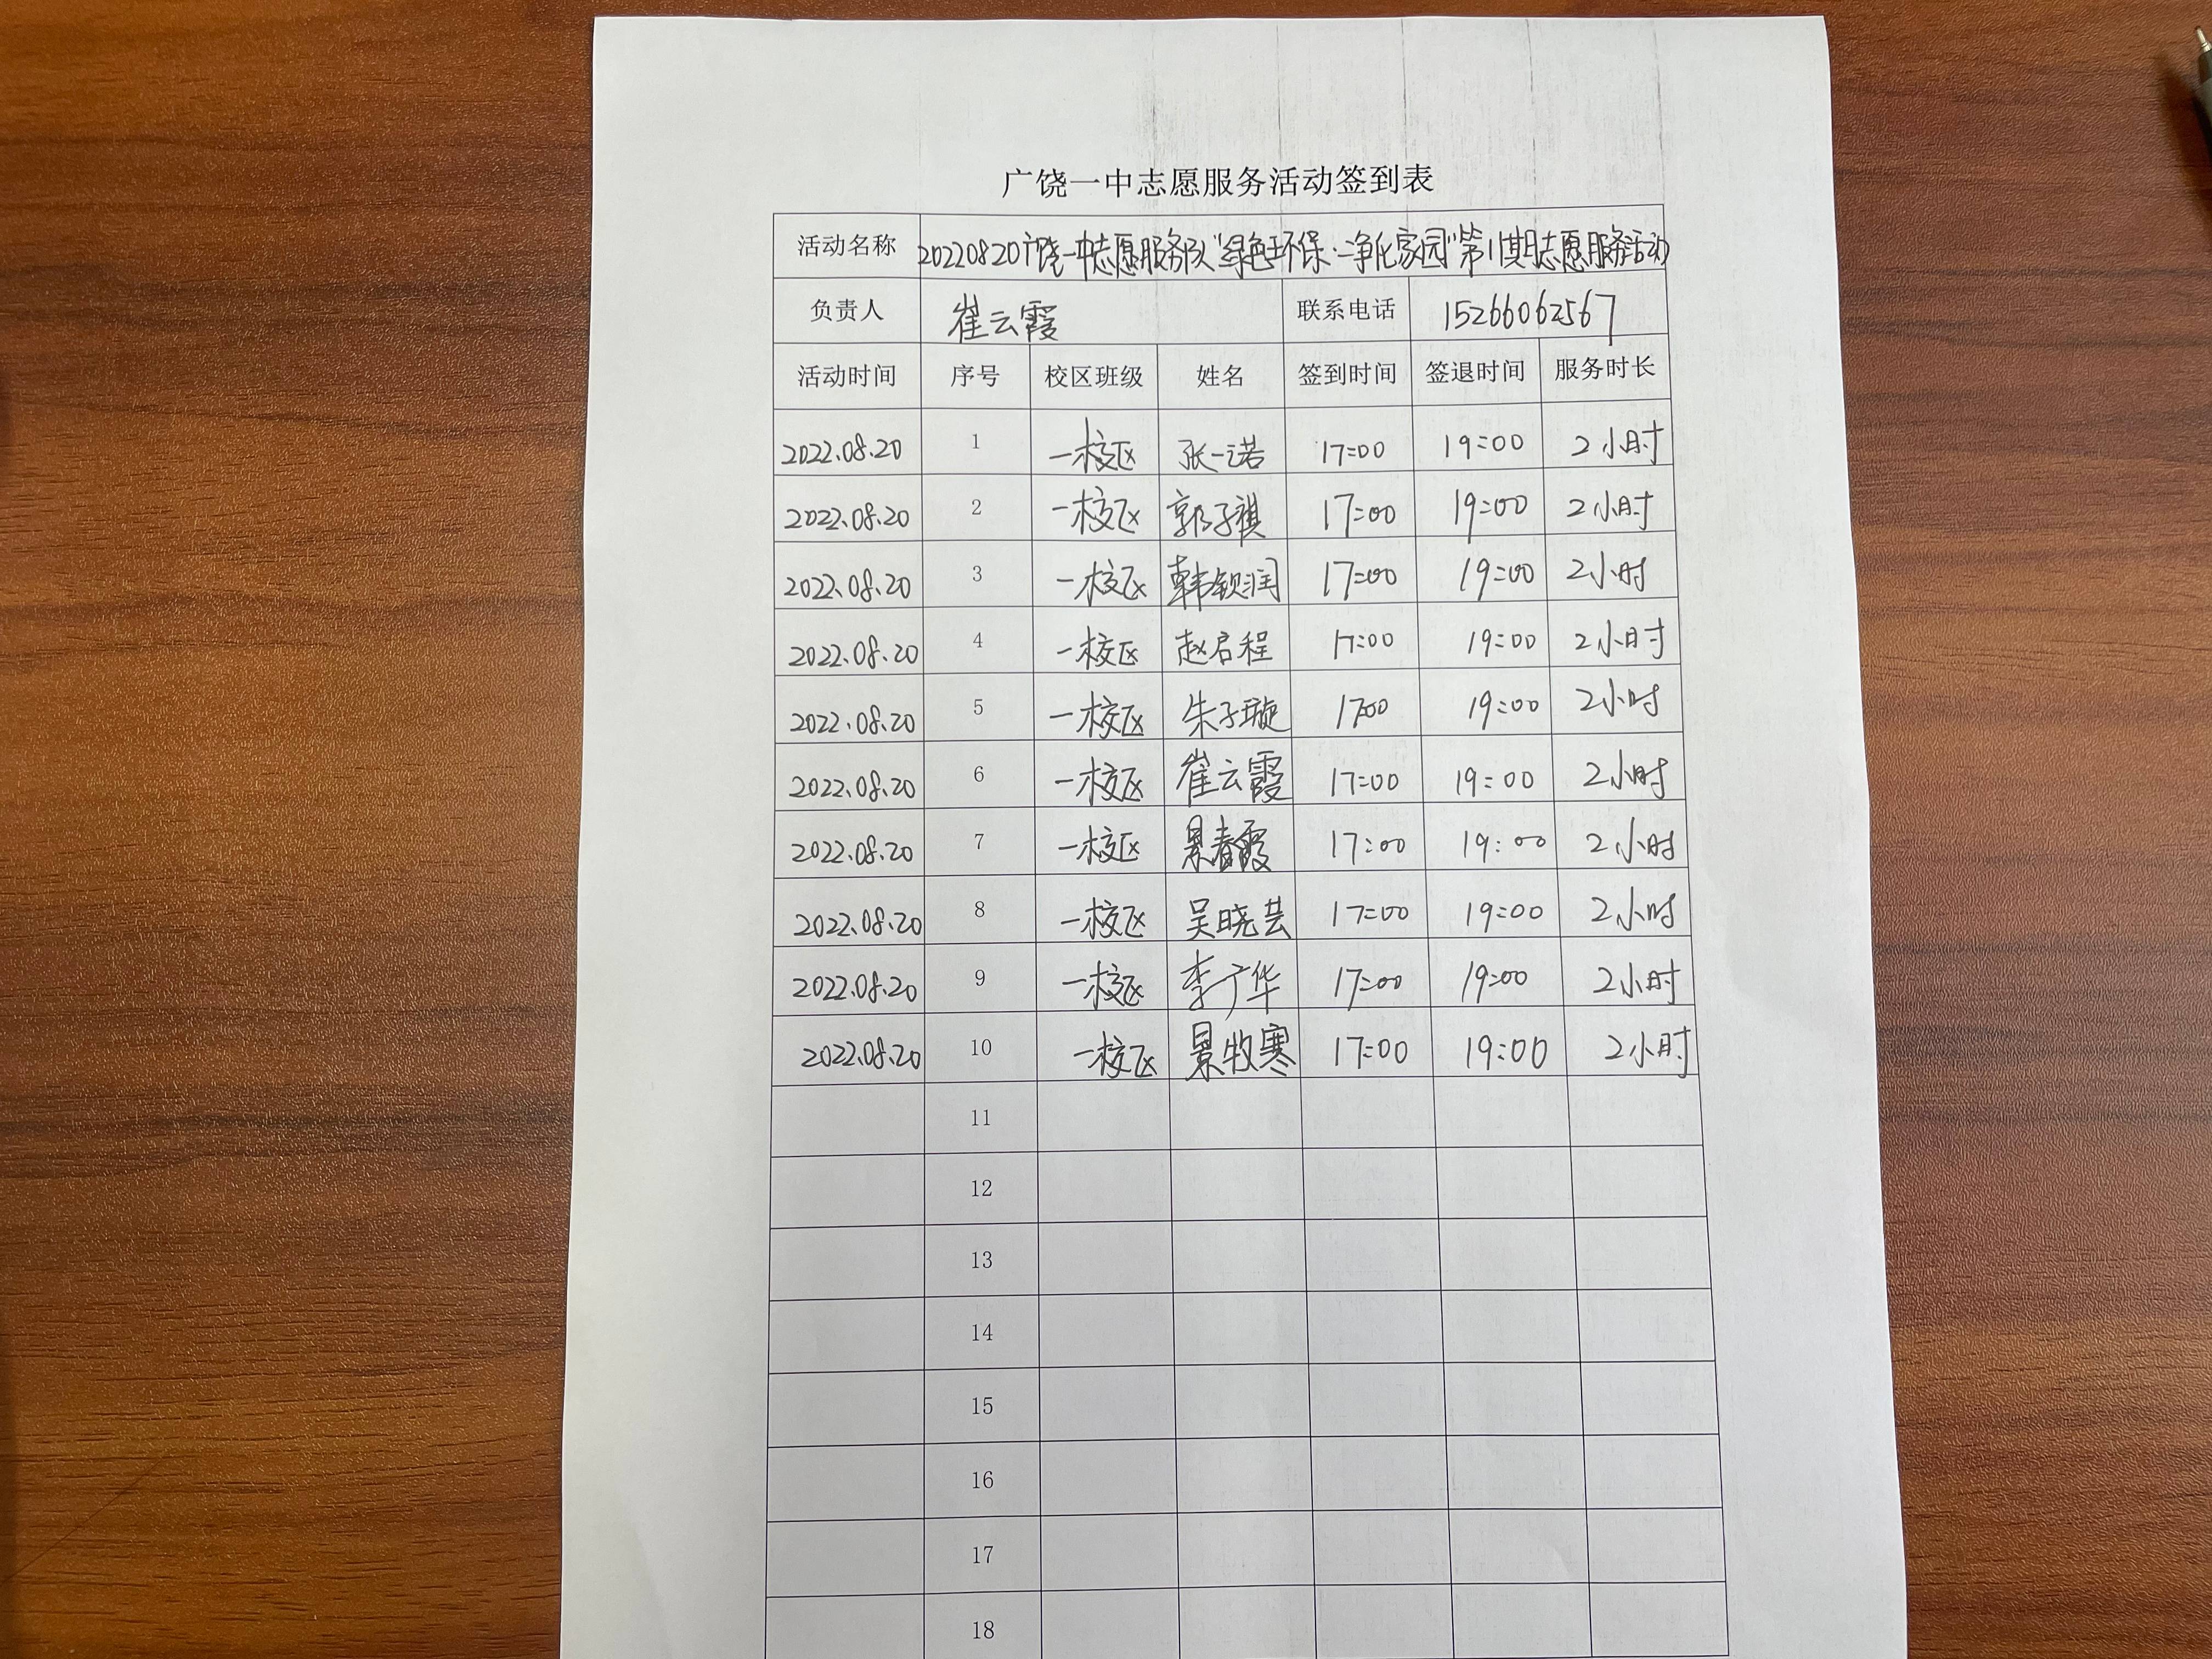 广饶一中志愿服务活动签到表
活动名称 20220820广饶一中志愿服务队“绿色环保·净化家园”第11期志愿服务活动
负责人 崔云霞 联系电话 15266062567
活动时间 序号 校区班级 姓名 签到时间 签退时间 服务时长
2022.08.20 1 一校区 张一诺 17:00 19:00 2小时
2022.08.20 2 一校区 郭子祺 17:00 19:00 2小时
2022.08.20 3 一校区 韩钦润 17:00 19:00 2小时
2022.08.20 4 一校区 赵启程 17:00 19:00 2小时
2022.08.20 5 一校区 朱子璇 17:00 19:00 2小时
2022.08.20 6 一校区 崔云霞 17:00 19:00 2小时
2022.08.20 7 一校区 景春霞 17:00 19:00 2小时
2022.08.20 8 一校区 吴晓芸 17:00 19:00 2小时
2022.08.20 9 一校区 李广华 17:00 19:00 2小时
2022.08.20 10 一校区 景牧寒 17:00 19:00 2小时
11
12
13
14
15
16
17
18